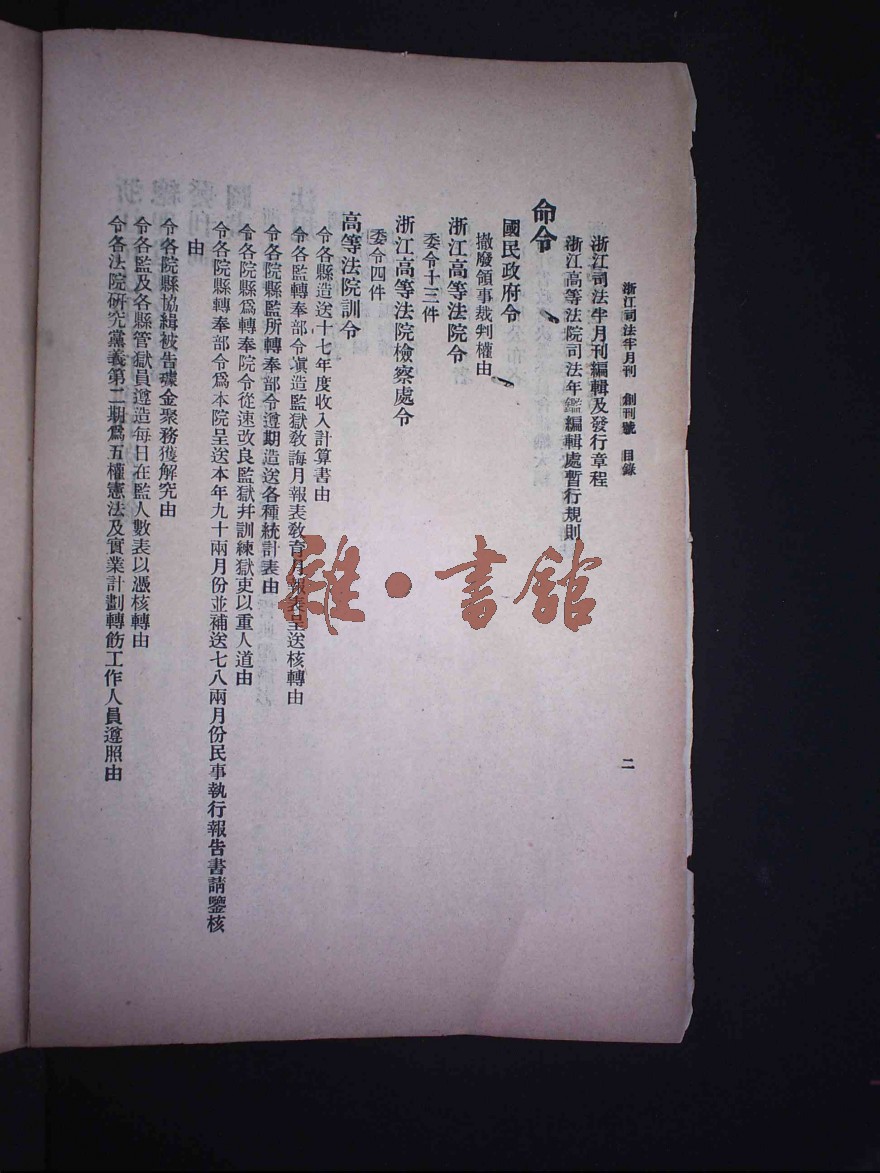 浙江司法半月刊　創刊號　目錄
二
浙江司法半月刊編輯及發行章程
浙江高等法院司法年鑑編輯處暫行規則
命令
國民政府令
撤廢領事裁判權由
浙江高等法院令
委令十三件
浙江高等法院檢察處令
委令四件
高等法院訓令
令各縣造送十七年度收入計算書由
令各監轉奉部令塡造監獄敎誨月報表敎育月報表呈送核轉由
令各院縣監所轉奉部令遵期造送各種統計表由
令各院縣爲轉奉院令從速改良監獄幷訓練獄吏以重人道由
令各院縣轉奉部令爲本院呈送本年九十兩月份並補送七八兩月份民事執行報告書請鑒核
由
令各院縣協緝被吿璩金聚務獲解究由
令各監及各縣管獄員遵造每日在監人數表以憑核轉由
令各法院硏究黨義第二期爲五權憲法及實業計劃轉飭工作人員遵照由
雜·書館